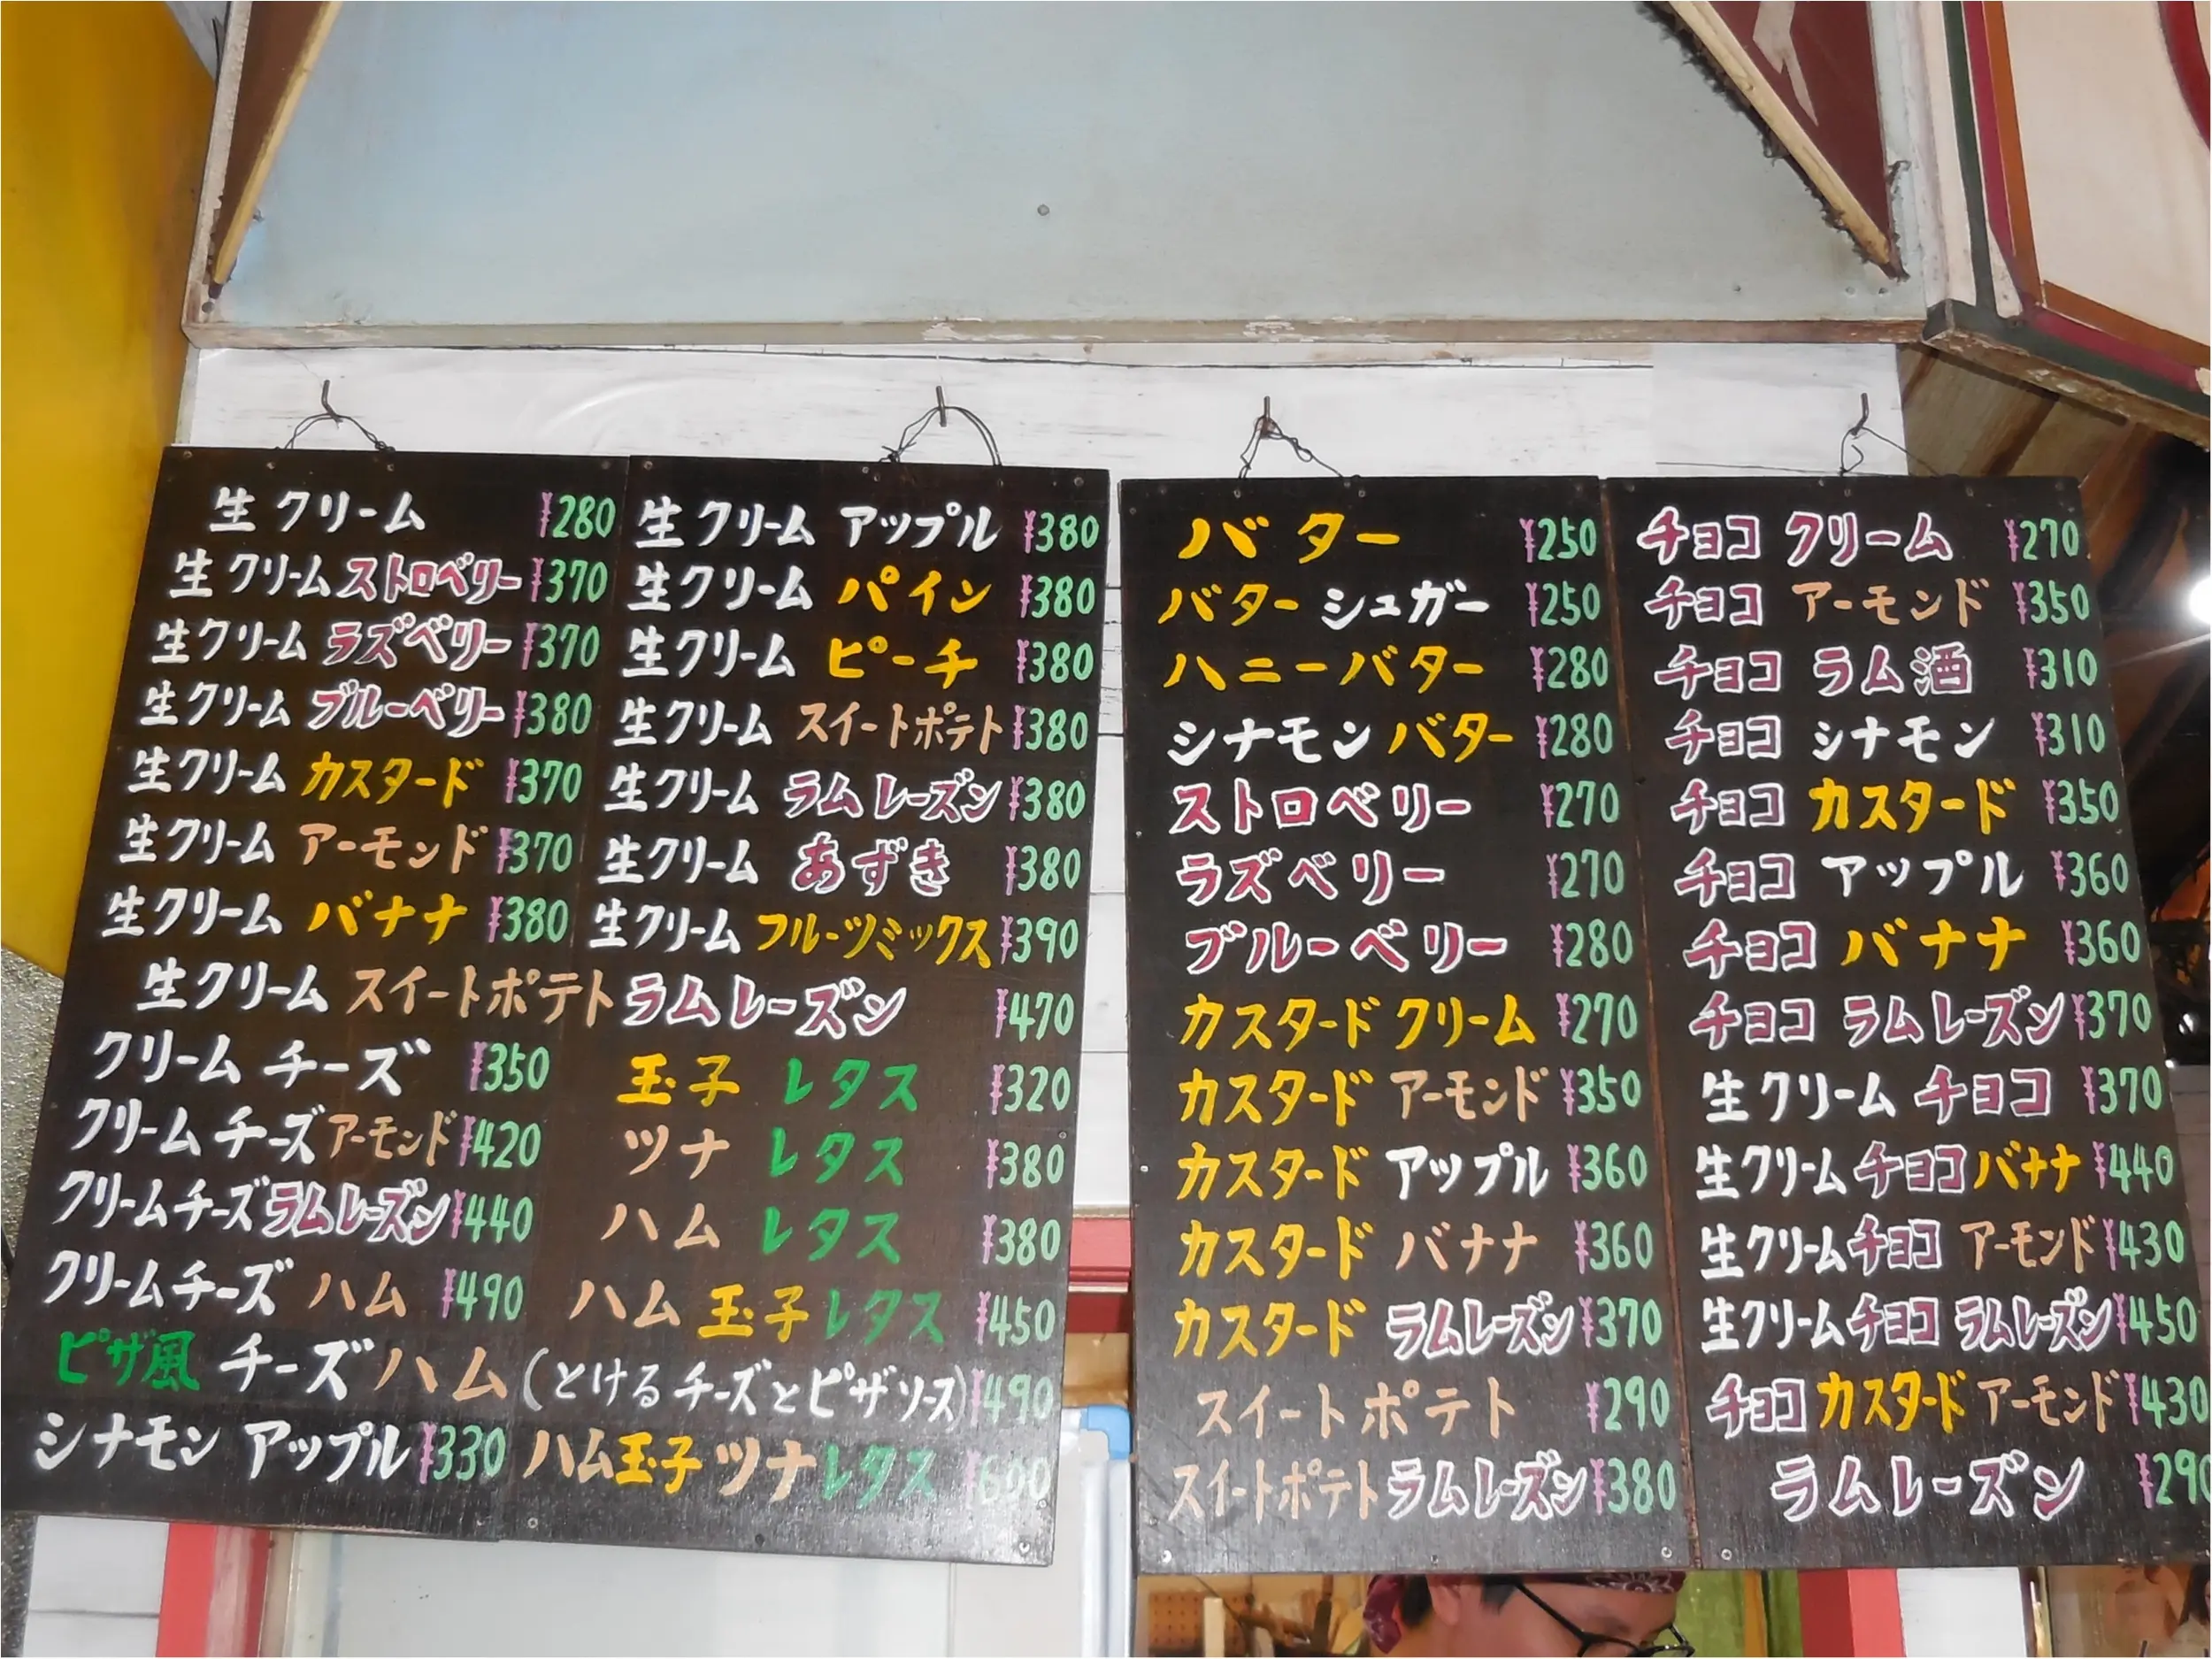 生クリーム ¥280
生クリーム ストロベリー ¥370
生クリーム ラズベリー ¥370
生クリーム ブルーベリー ¥380
生クリーム カスタード ¥370
生クリーム アーモンド ¥370
生クリーム バナナ ¥380
生クリーム アップル ¥380
生クリーム パイン ¥380
生クリーム ピーチ ¥380
生クリーム スイートポテト ¥380
生クリーム ラムレーズン ¥380
生クリーム あずき ¥380
生クリーム フルーツミックス ¥390
生クリーム スイートポテト ラムレーズン ¥470
クリーム チーズ ¥350
クリーム チーズ アーモンド ¥420
クリームチーズ ラムレーズン ¥440
クリームチーズ ハム ¥490
玉子 レタス ¥320
ツナ レタス ¥380
ハム レタス ¥380
ハム 玉子 レタス ¥450
ピザ風 チーズ ハム (とけるチーズとピザソース) ¥490
シナモン アップル ¥330
ハム玉子 ツナ レタス ¥600
バター ¥250
バター シュガー ¥250
ハニーバター ¥280
シナモン バター ¥280
ストロベリー ¥270
ラズベリー ¥270
ブルーベリー ¥280
カスタード クリーム ¥270
カスタード アーモンド ¥350
カスタード アップル ¥360
カスタード バナナ ¥360
カスタード ラムレーズン ¥370
スイートポテト ¥290
スイートポテト ラムレーズン ¥380
チョコ クリーム ¥270
チョコ アーモンド ¥350
チョコ ラム酒 ¥310
チョコ シナモン ¥310
チョコ カスタード ¥350
チョコ アップル ¥360
チョコ バナナ ¥360
チョコ ラムレーズン ¥370
生クリーム チョコ ¥370
生クリーム チョコ バナナ ¥440
生クリーム チョコ アーモンド ¥430
生クリーム チョコ ラムレーズン ¥450
チョコ カスタード アーモンド ¥430
ラムレーズン ¥290